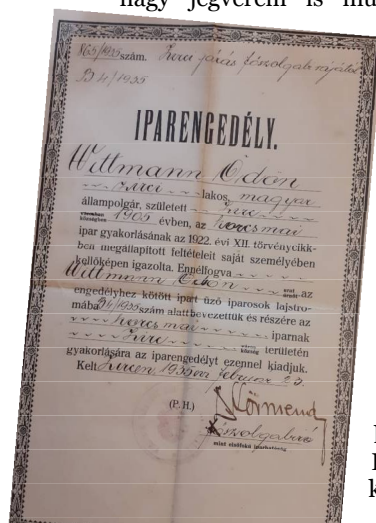 nagy jégverem is
863/1935 szám. Zirci járás főszolgabírájától
B 4/1935
IPARENGEDÉLY.
Wittmann Ödön
zirci lakos, magyar
állampolgár, született Zirc
községben 1905 évben, az korcsmai
ipar gyakorlásának az 1922. évi XII. törvénycikk-
ben megállapított feltételeit saját személyében
kellőképen igazolta. Ennélfogva
Wittmann Ödön az
engedélyhez kötött ipart űző iparosok lajstro-
mába B4/1935 szám alatt bevezettük és részére az
korcsmai iparnak
Zirc község területén
gyakorlására az iparengedélyt ezennel kiadjuk.
Kelt Zircen 1935 évi február 23.
(P. H.)
Körmendy
főszolgabíró
mint elsőfokú iparhatóság